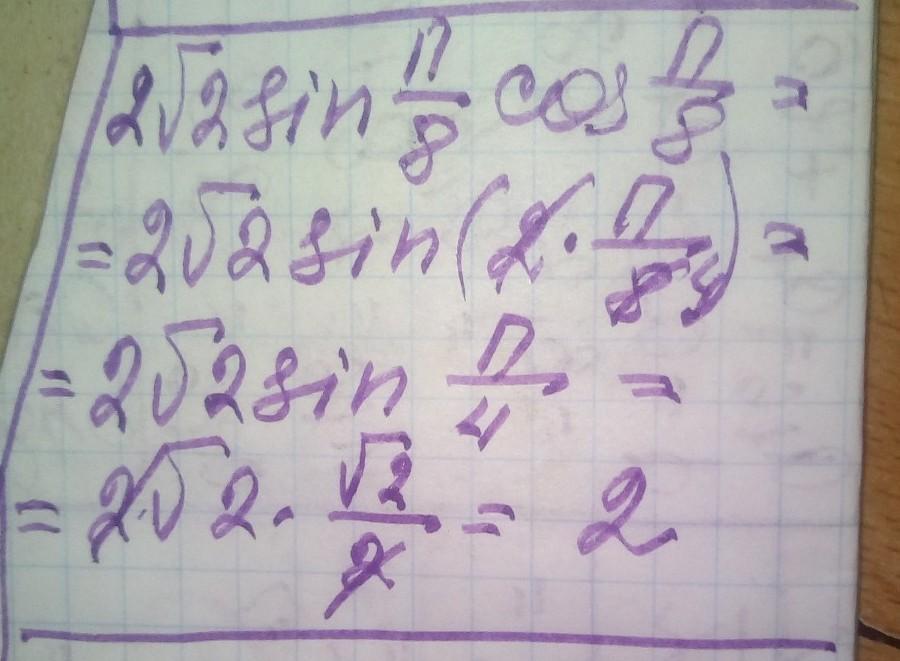 2√2 sin π/8 cos π/8 =
= 2√2 sin(2 · π/8 4) =
= 2√2 sin π/4 =
= 2√2 · √2/2 = 2